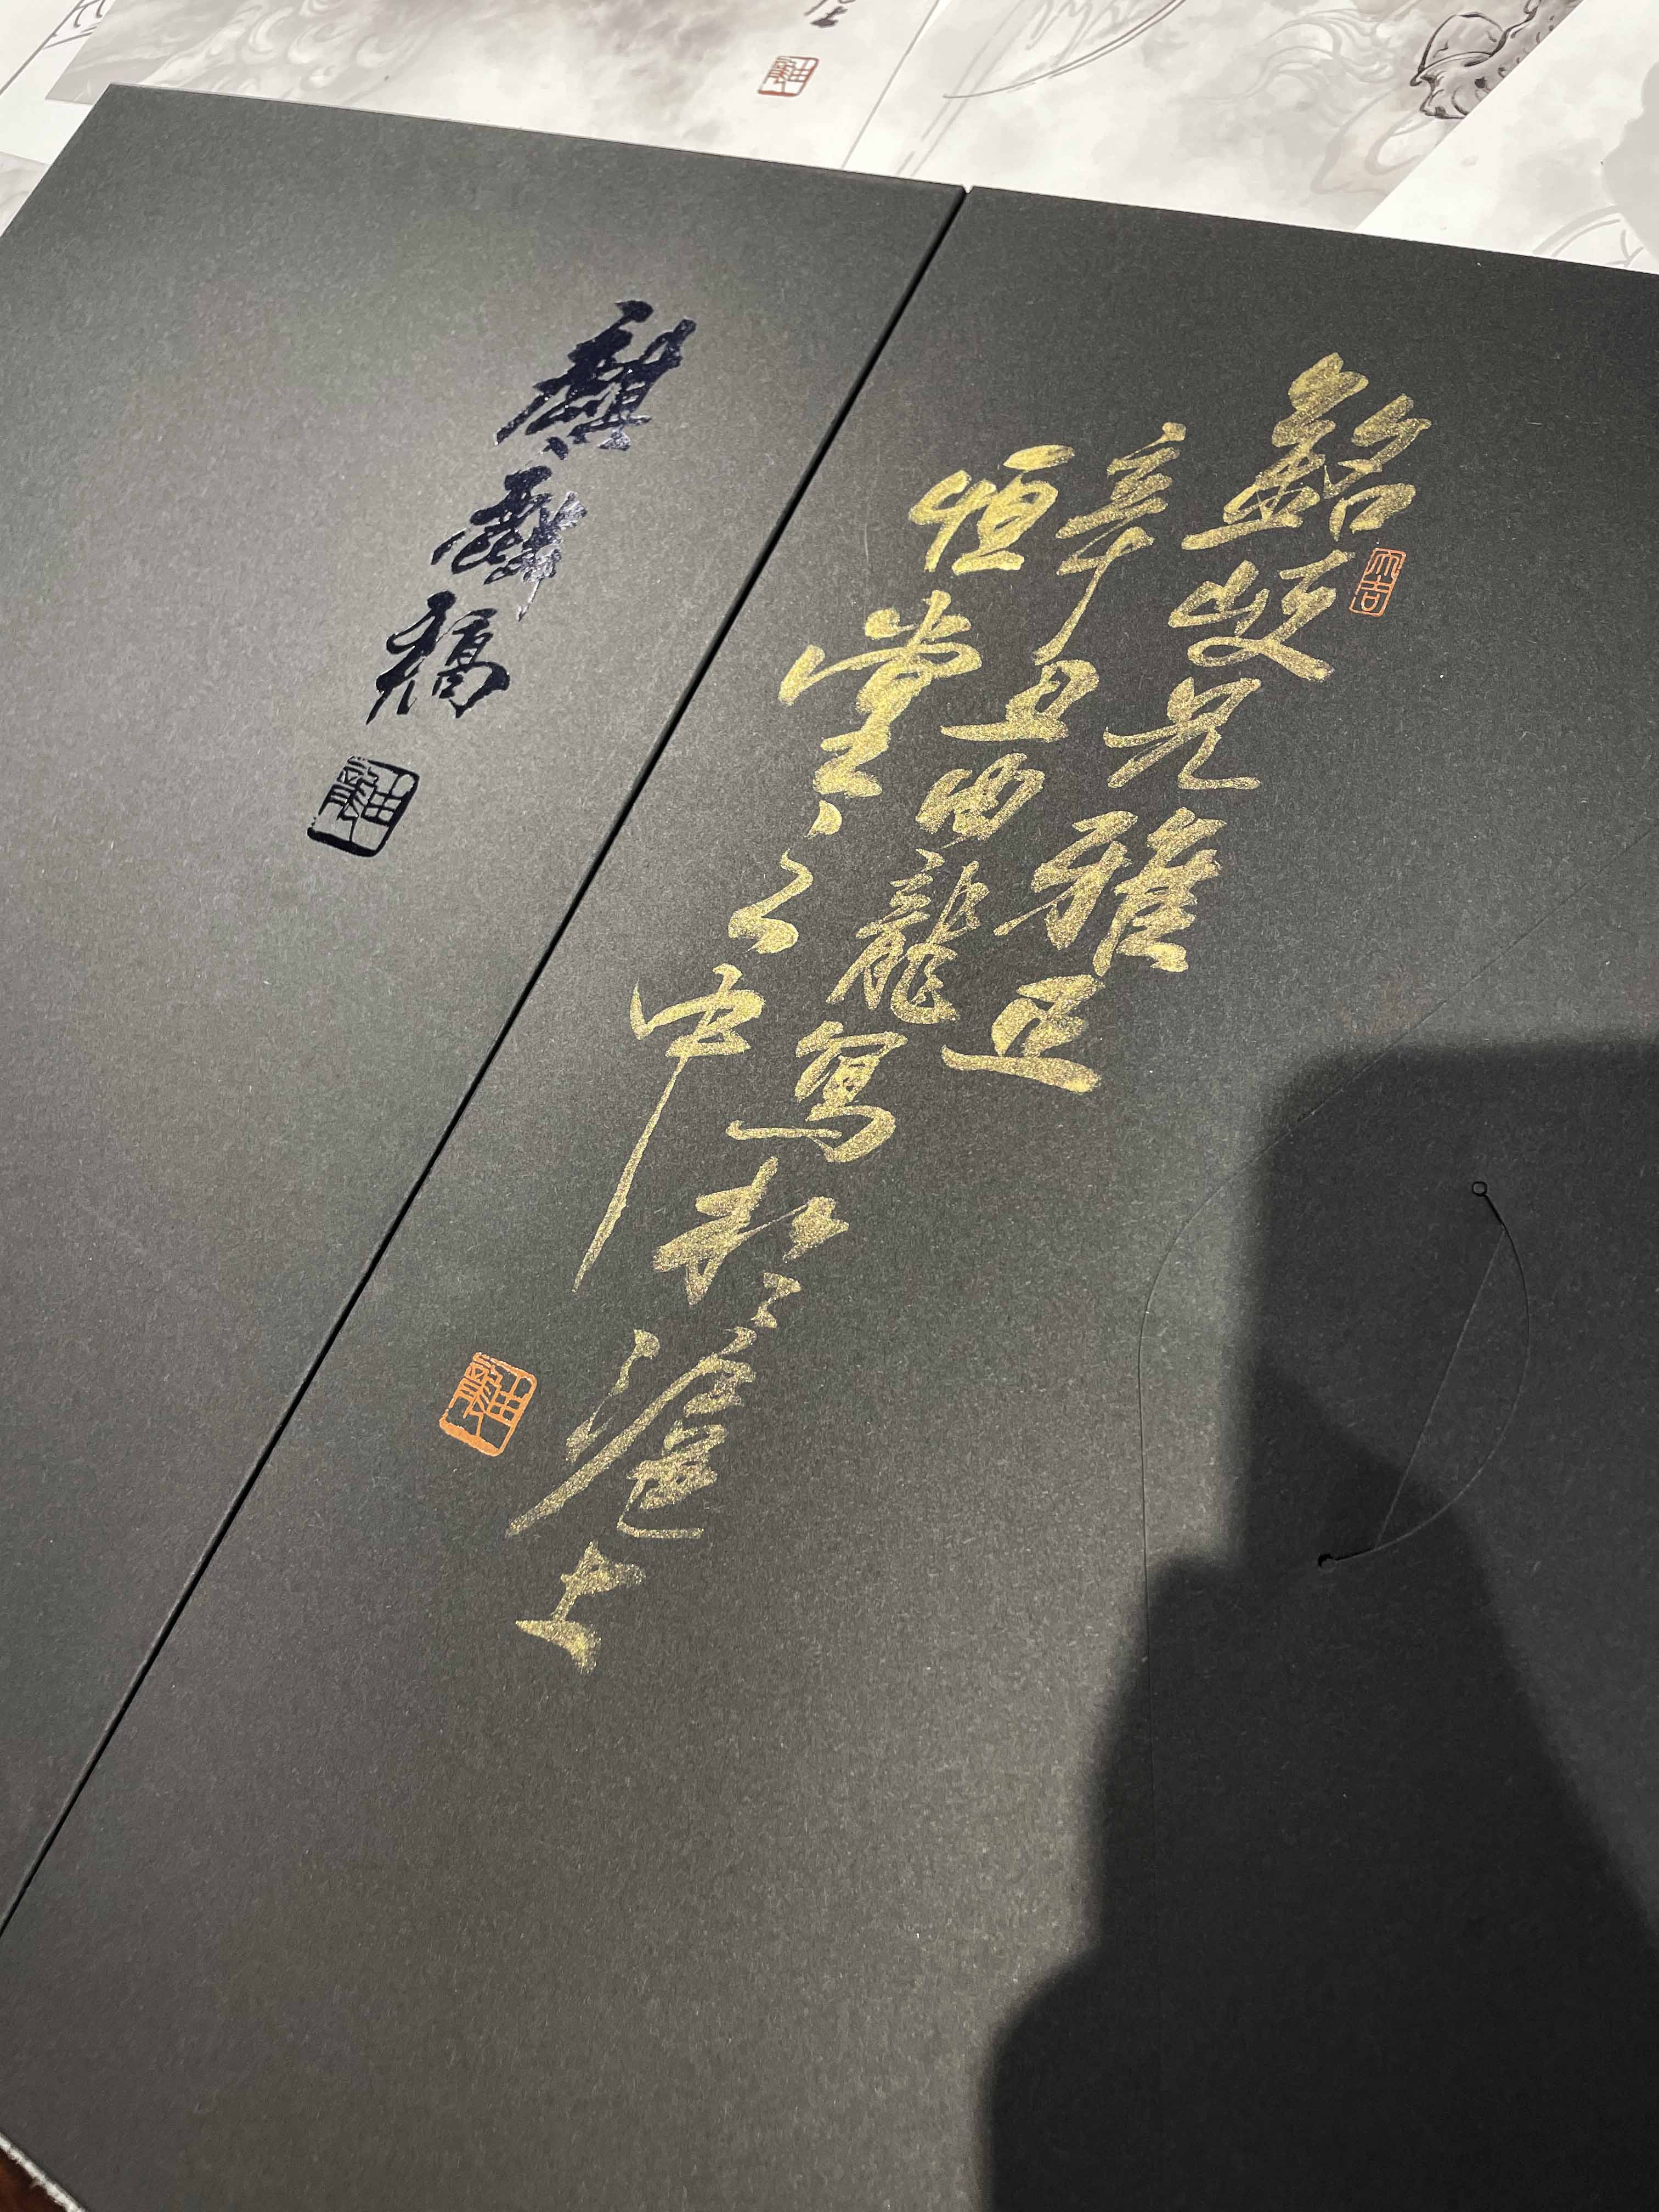 銘岐兄雅正
大吉
辛丑曲龍寫於滬上
恒堂之中
麒麟稿